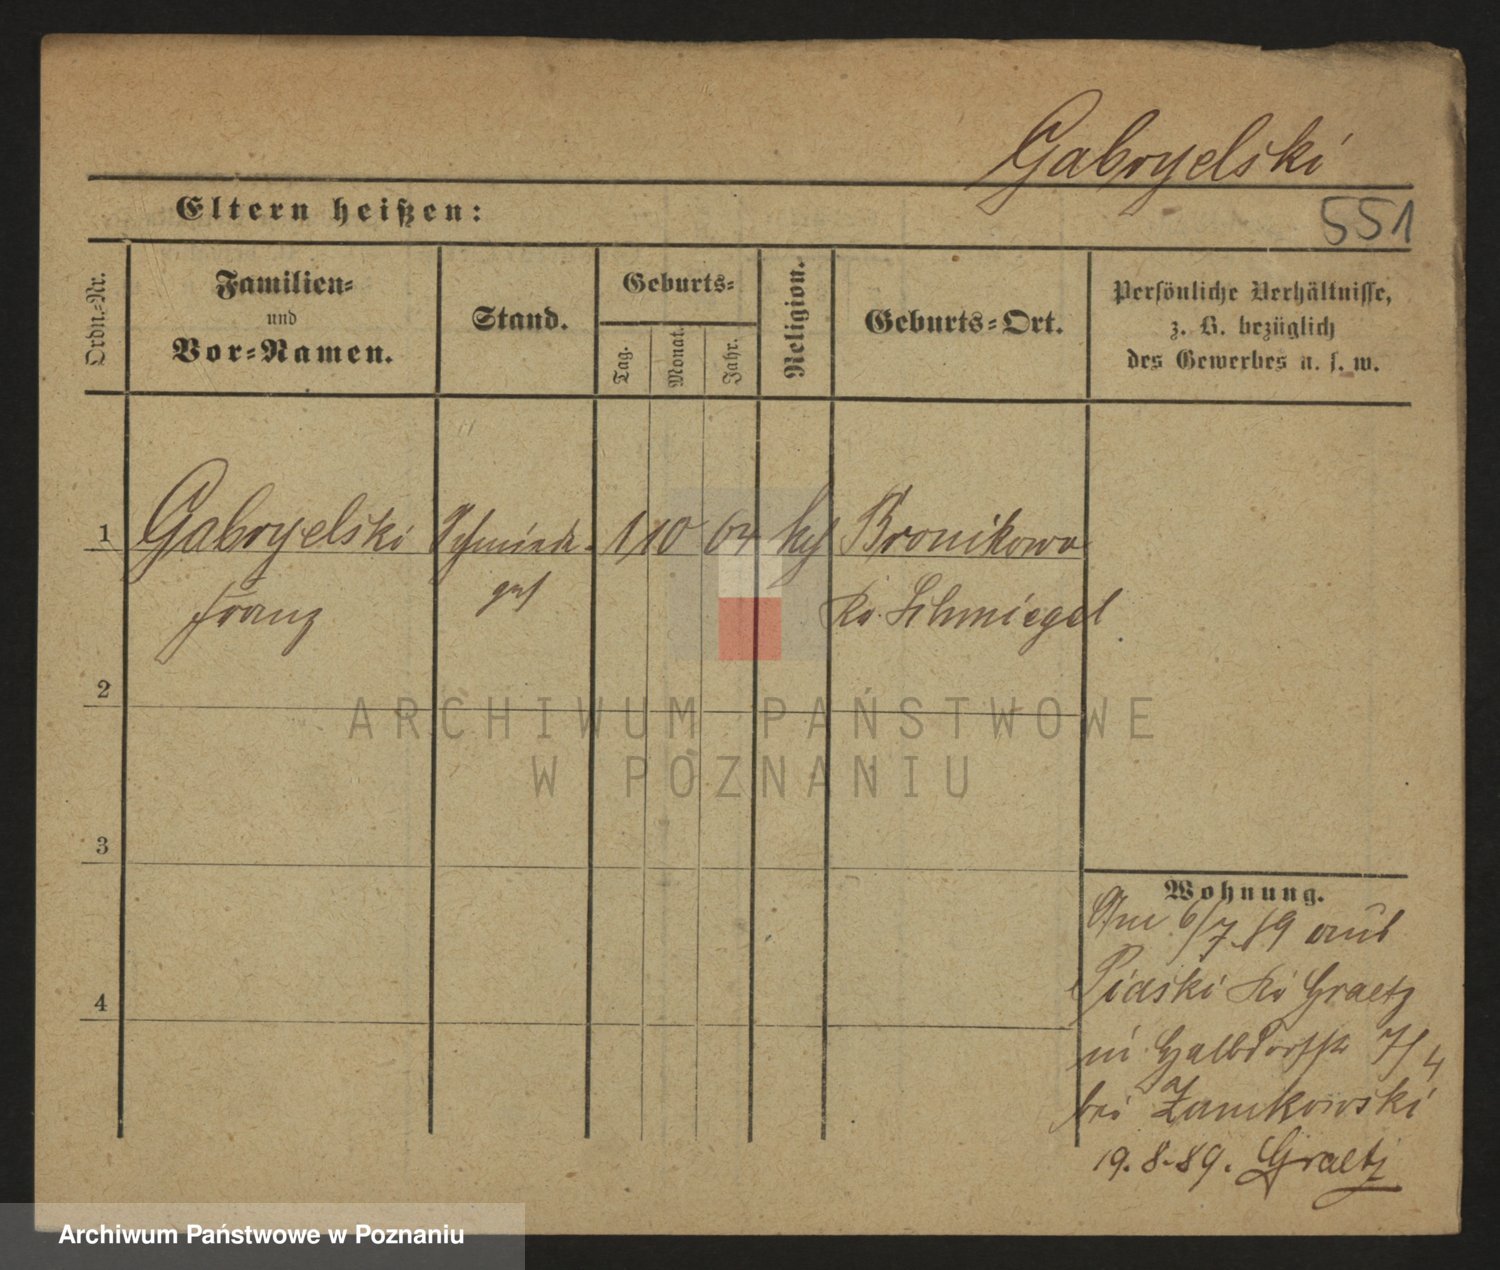 Gabryelski
Eltern heißen:
551
Ordn.-Nr.
Familien-
und
Vor-Namen.
Stand.
Geburts-
Tag.
Monat.
Jahr.
Religion.
Geburts-Ort.
Persönliche Verhältnisse,
z. B. bezüglich
des Gewerbes u. s. w.
1 Gabryelski Schmiede- 1 10 64 kth Bronikowo
Franz ges Kr. Schmiegel
2
ARCHIWUM PAŃSTWOWE
W POZNANIU
3
4
Wohnung.
Am 6/7 89 aus
Piaski Kr Graetz
in Halbdorfstr 7/4
bei Zamkowski
19.8.89. Graetz
Archiwum Państwowe w Poznaniu